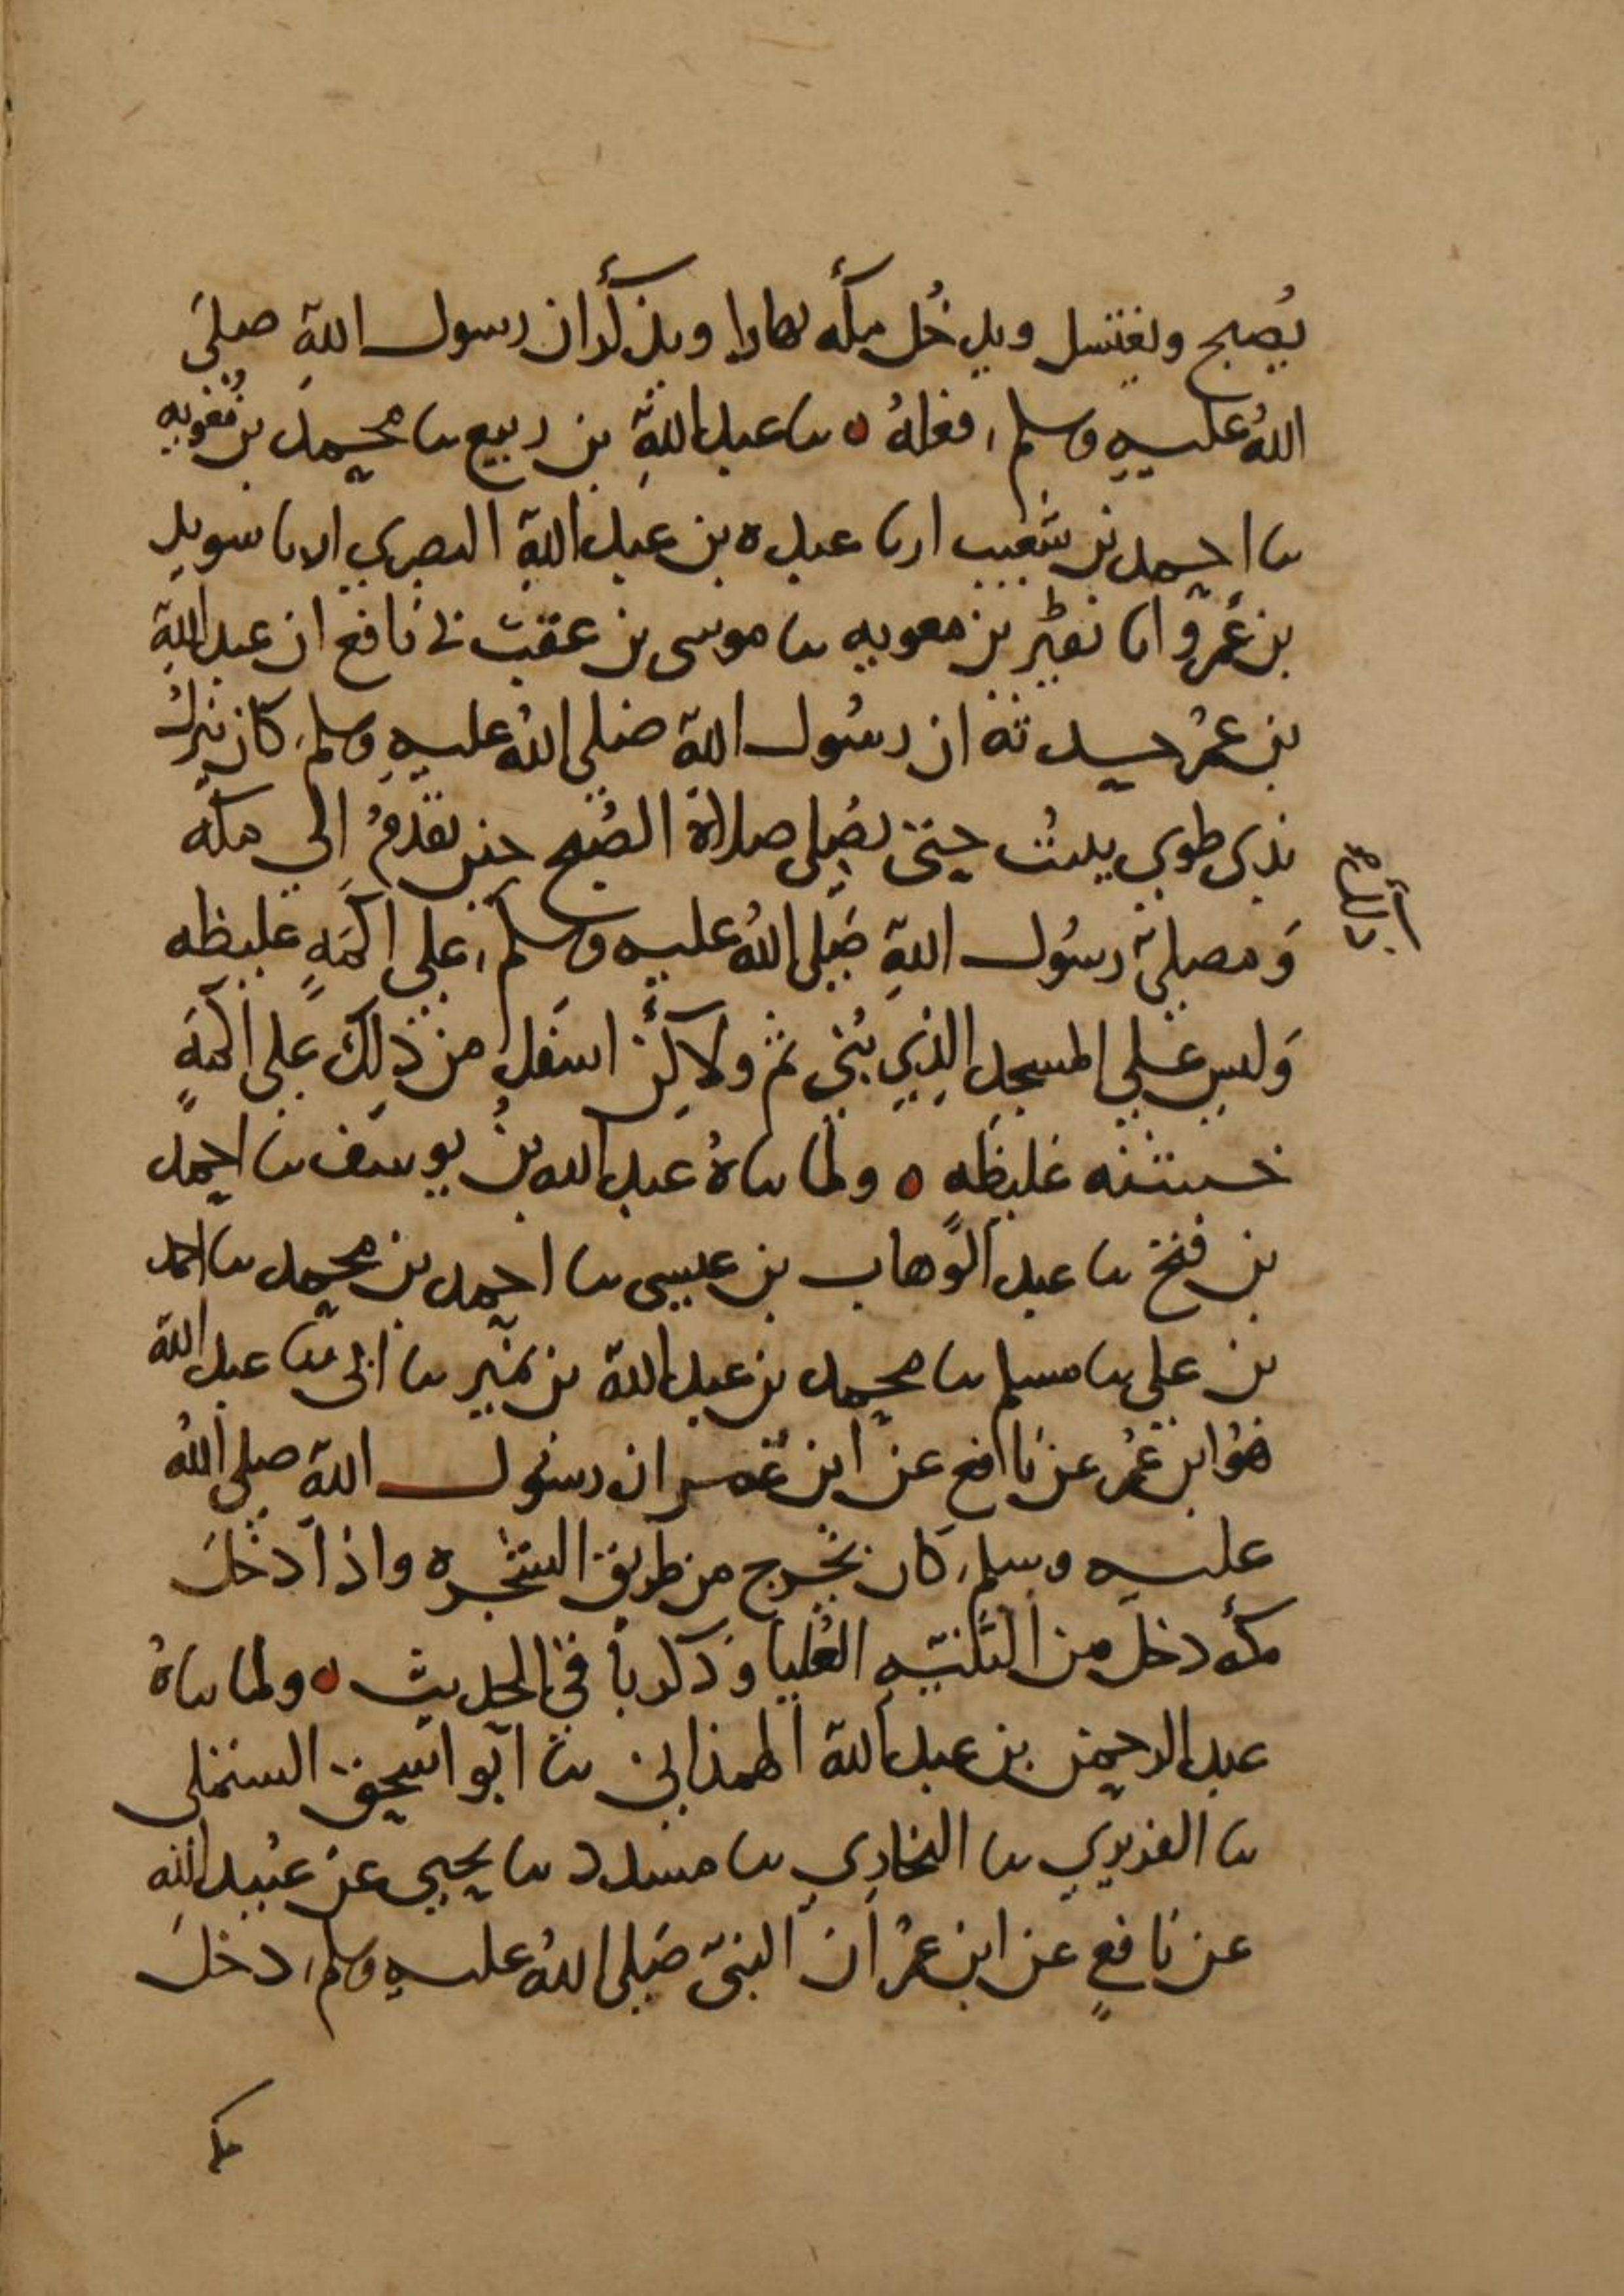 يُصبح ويغتسل ويدخُل مكه نهارا ويذكر ان رسول الله صلى
الله عليه وسلم، فعله ٥ ىا عبد الله بن ربيع ىا محمد بن معويه
ىا احمد بن شعيب ارىا عبده بن عبد الله البصري ارىا سويد
بن عمرو اىا زهير بن معويه ىا موسى بن عقبة نى نافع ان عبد الله
بن عمر حدثه ان رسول الله صلى الله عليه وسلم، كان ينزل
بذي طوي يبيت حتى يصلى صلاة الصبح حين يقدمُ الي مكه
وَمصلى رسول الله صلى الله عليه وسلم، على اكمَةٍ غليظه
وَليس على المسجد الذي بُنى ثم ولاكن اسفل من ذلك على اكمَةٍ
خشنه غليظه ٥ ولما ىاهُ عبد الله بن يوسف ىا احمد
بن فتح ىا عبد الوهاب بن عيسى ىا احمد بن محمد ىا احمد
بن على ىا مسلم ىا محمد بن عبد الله بن نمير ىا ابى ىا عبد الله
هُو ابن عمر عن نافع عن ابن عمر ان رسول الله صلى الله
عليه وسلم، كان يخرج من طريق الشجره واذا دخل
مكه دخل من الثنيه العُليا وذكر باقى الحديث ٥ ولما ىاهُ
عبد الرحمن بن عبد الله الهمذانى ىا ابو اسحق المستملى
ىا الفربري ىا البخاري ىا مسدد ىا يحيى عن عُبيد الله
عن نافعٍ عن ابن عمر ان النبى صلى الله عليه وسلم، دخل
مكه